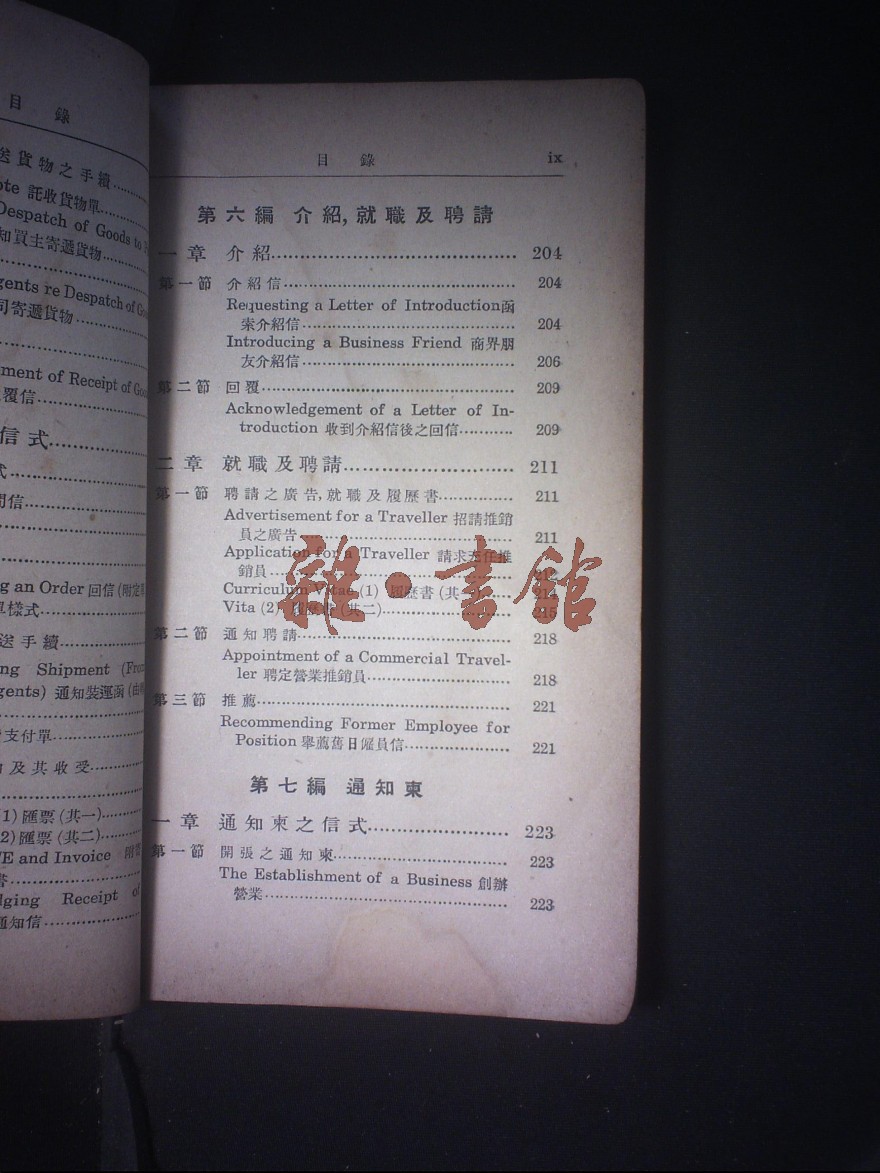 目 錄
送貨物之手續
ote 託收貨物單
Despatch of Goods to
知買主寄遞貨物
gents re Despatch of Go
司寄遞貨物
ment of Receipt of Goo
覆信
信式
式
問信
ng an Order 回信(附定單
單樣式
送手續
ing Shipment (From
gents) 通知裝運函(由
支付單
及其收受
1) 匯票(其一)
2) 匯票(其二)
E and Invoice
書
dging Receipt of
通知信
目 錄 ix
第六編 介紹,就職及聘請
一章 介紹 204
第一節 介紹信 204
Requesting a Letter of Introduction函
索介紹信 204
Introducing a Business Friend 商界朋
友介紹信 206
第二節 回覆 209
Acknowledgement of a Letter of In-
troduction 收到介紹信後之回信 209
二章 就職及聘請 211
第一節 聘請之廣告,就職及履歷書 211
Advertisement for a Traveller 招請推銷
員之廣告 211
Application for a Traveller 請求充任推
銷員 212
Curriculum Vitae (1) 履歷書(其一) 214
Vita (2) 履歷書(其二) 215
第二節 通知聘請 218
Appointment of a Commercial Travel-
ler 聘定營業推銷員 218
第三節 推薦 221
Recommending Former Employee for
Position 舉薦舊日僱員信 221
第七編 通知柬
一章 通知柬之信式 223
第一節 開張之通知柬 223
The Establishment of a Business 創辦
營業 223
雜·書館